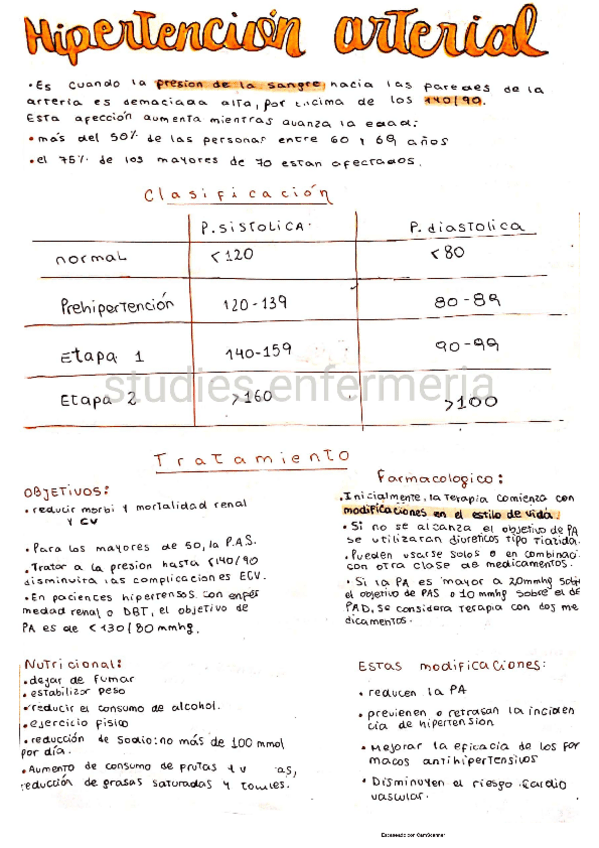 Hipertención arterial
• Es cuando la presion de la sangre hacia las paredes de la
arteria es demaciada alta, por encima de los 140/90.
Esta afección aumenta mientras avanza la edad:
• más del 50% de las personas entre 60 y 69 años
• el 75% de los mayores de 70 estan afectados.
Clasificación
P. SISTOLICA. P. diastolica
normal <120 <80
Prehipertención 120-139 80-89
Etapa 1 140-159 90-99
studies.enfermeria
Etapa 2 >160 >100
Tratamiento
OBJETIVOS:
• reducir morbi y mortalidad renal
y CV
• Para los mayores de 50, la P.A.S.
• Tratar a la presion hasta <140/90
disminuira las complicaciones ECV.
• En paciences hipertensos con enfer
medad renal o DBT, el objetivo de
PA es de <130/80 mmhg.
Farmacologico:
• Inicialmente, la terapia comienza con
modificaciones en el estilo de vida.
• Si no se alzanza el objetivo de PA
se utilizaran diureticos tipo Tiazida.
• Pueden usarse solos o en combinaci
con otra clase de medicamentos.
• Si la PA es mayor a 20mmhg sobre
el objetivo de PAS o 10 mmhg sobre el de
PAD, se considera terapia con dos me
dicamentos.
Nutricional:
• dejar de fumar
• estabilizar peso
• reducir el consumo de alcohol.
• ejercicio fisico
• reducción de Sodio: no más de 100 mmol
por día.
• Aumento de consumo de frutas
reducción de grasas saturadas y
Estas modificaciones:
• reducen la PA
• previenen o retrasan la inciden
cia de hipertension
• Mejorar la eficacia de los far
macos antihipertensivos
• Disminuyen el riesgo cardio
vascular.
Escaneado con CamScanner